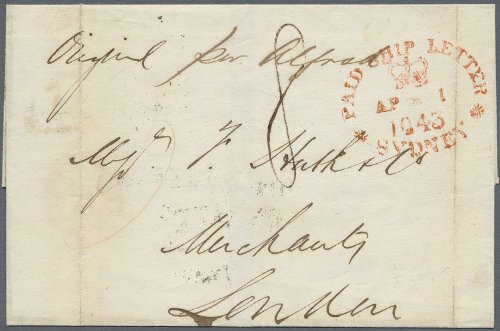 Original per Alfred
8
PAID SHIP LETTER
AP 1
1843
SYDNEY
Messrs F. Huth & Co
Merchants
London